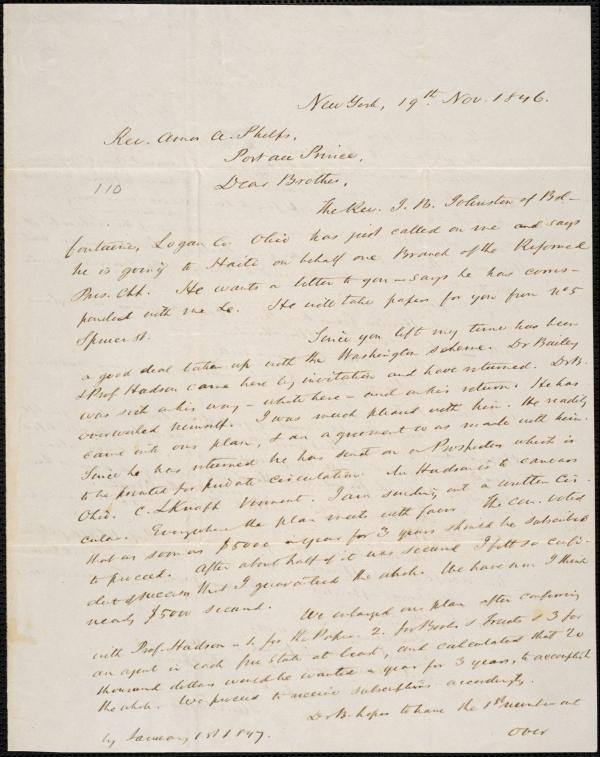 New York, 19th. Nov. 1846.
Rev. Amos A. Phelps,
Port au Prince,
110
Dear Brother,
The Rev. J. B. Johnston of Bel-
fontaine, Logan Co. Ohio has just called on me and says
he is going to Haiti on behalf one Branch of the Reformed
Pres. Chh. He wants a letter to you — says he has corres-
ponded with me &c. He will take papers for you from No 5
Spruce St.
Since you left my time has been
a good deal taken up with the Washington scheme. Dr Bailey
& Prof Hudson came here by invitation and have returned. Dr B.
was sick on his way – while here – and on his return. He has
overworked himself. I was much pleased with him. He readily
came into our plan, & an agreement was made with him.
Since he has returned he has sent on a Prospectus which is
to be printed for private circulation. Mr Hudson is to canvass
Ohio. C. L. Knapp Vermont. I am sending out a written Cir-
cular. Everywhere the plan meets with favor. The com. voted
that as soon as $5000 a year for 3 years should be subscribed
to proceed. After about half of it was secured I felt so confi-
dent of success that I guaranteed the whole. We have now I think
nearly $5000 secured.
We enlarged our plan after conferring
with Prof. Hudson – 1. for the Paper 2. for Books & Tracts & 3 for
an agent in each free State at least, and calculated that 20
thousand dollars would be wanted a year for 3 years, to accomplish
the whole. We proceed to receive subscriptions accordingly.
Dr B. hopes to have the 1st number out
by January 1st 1847.
over